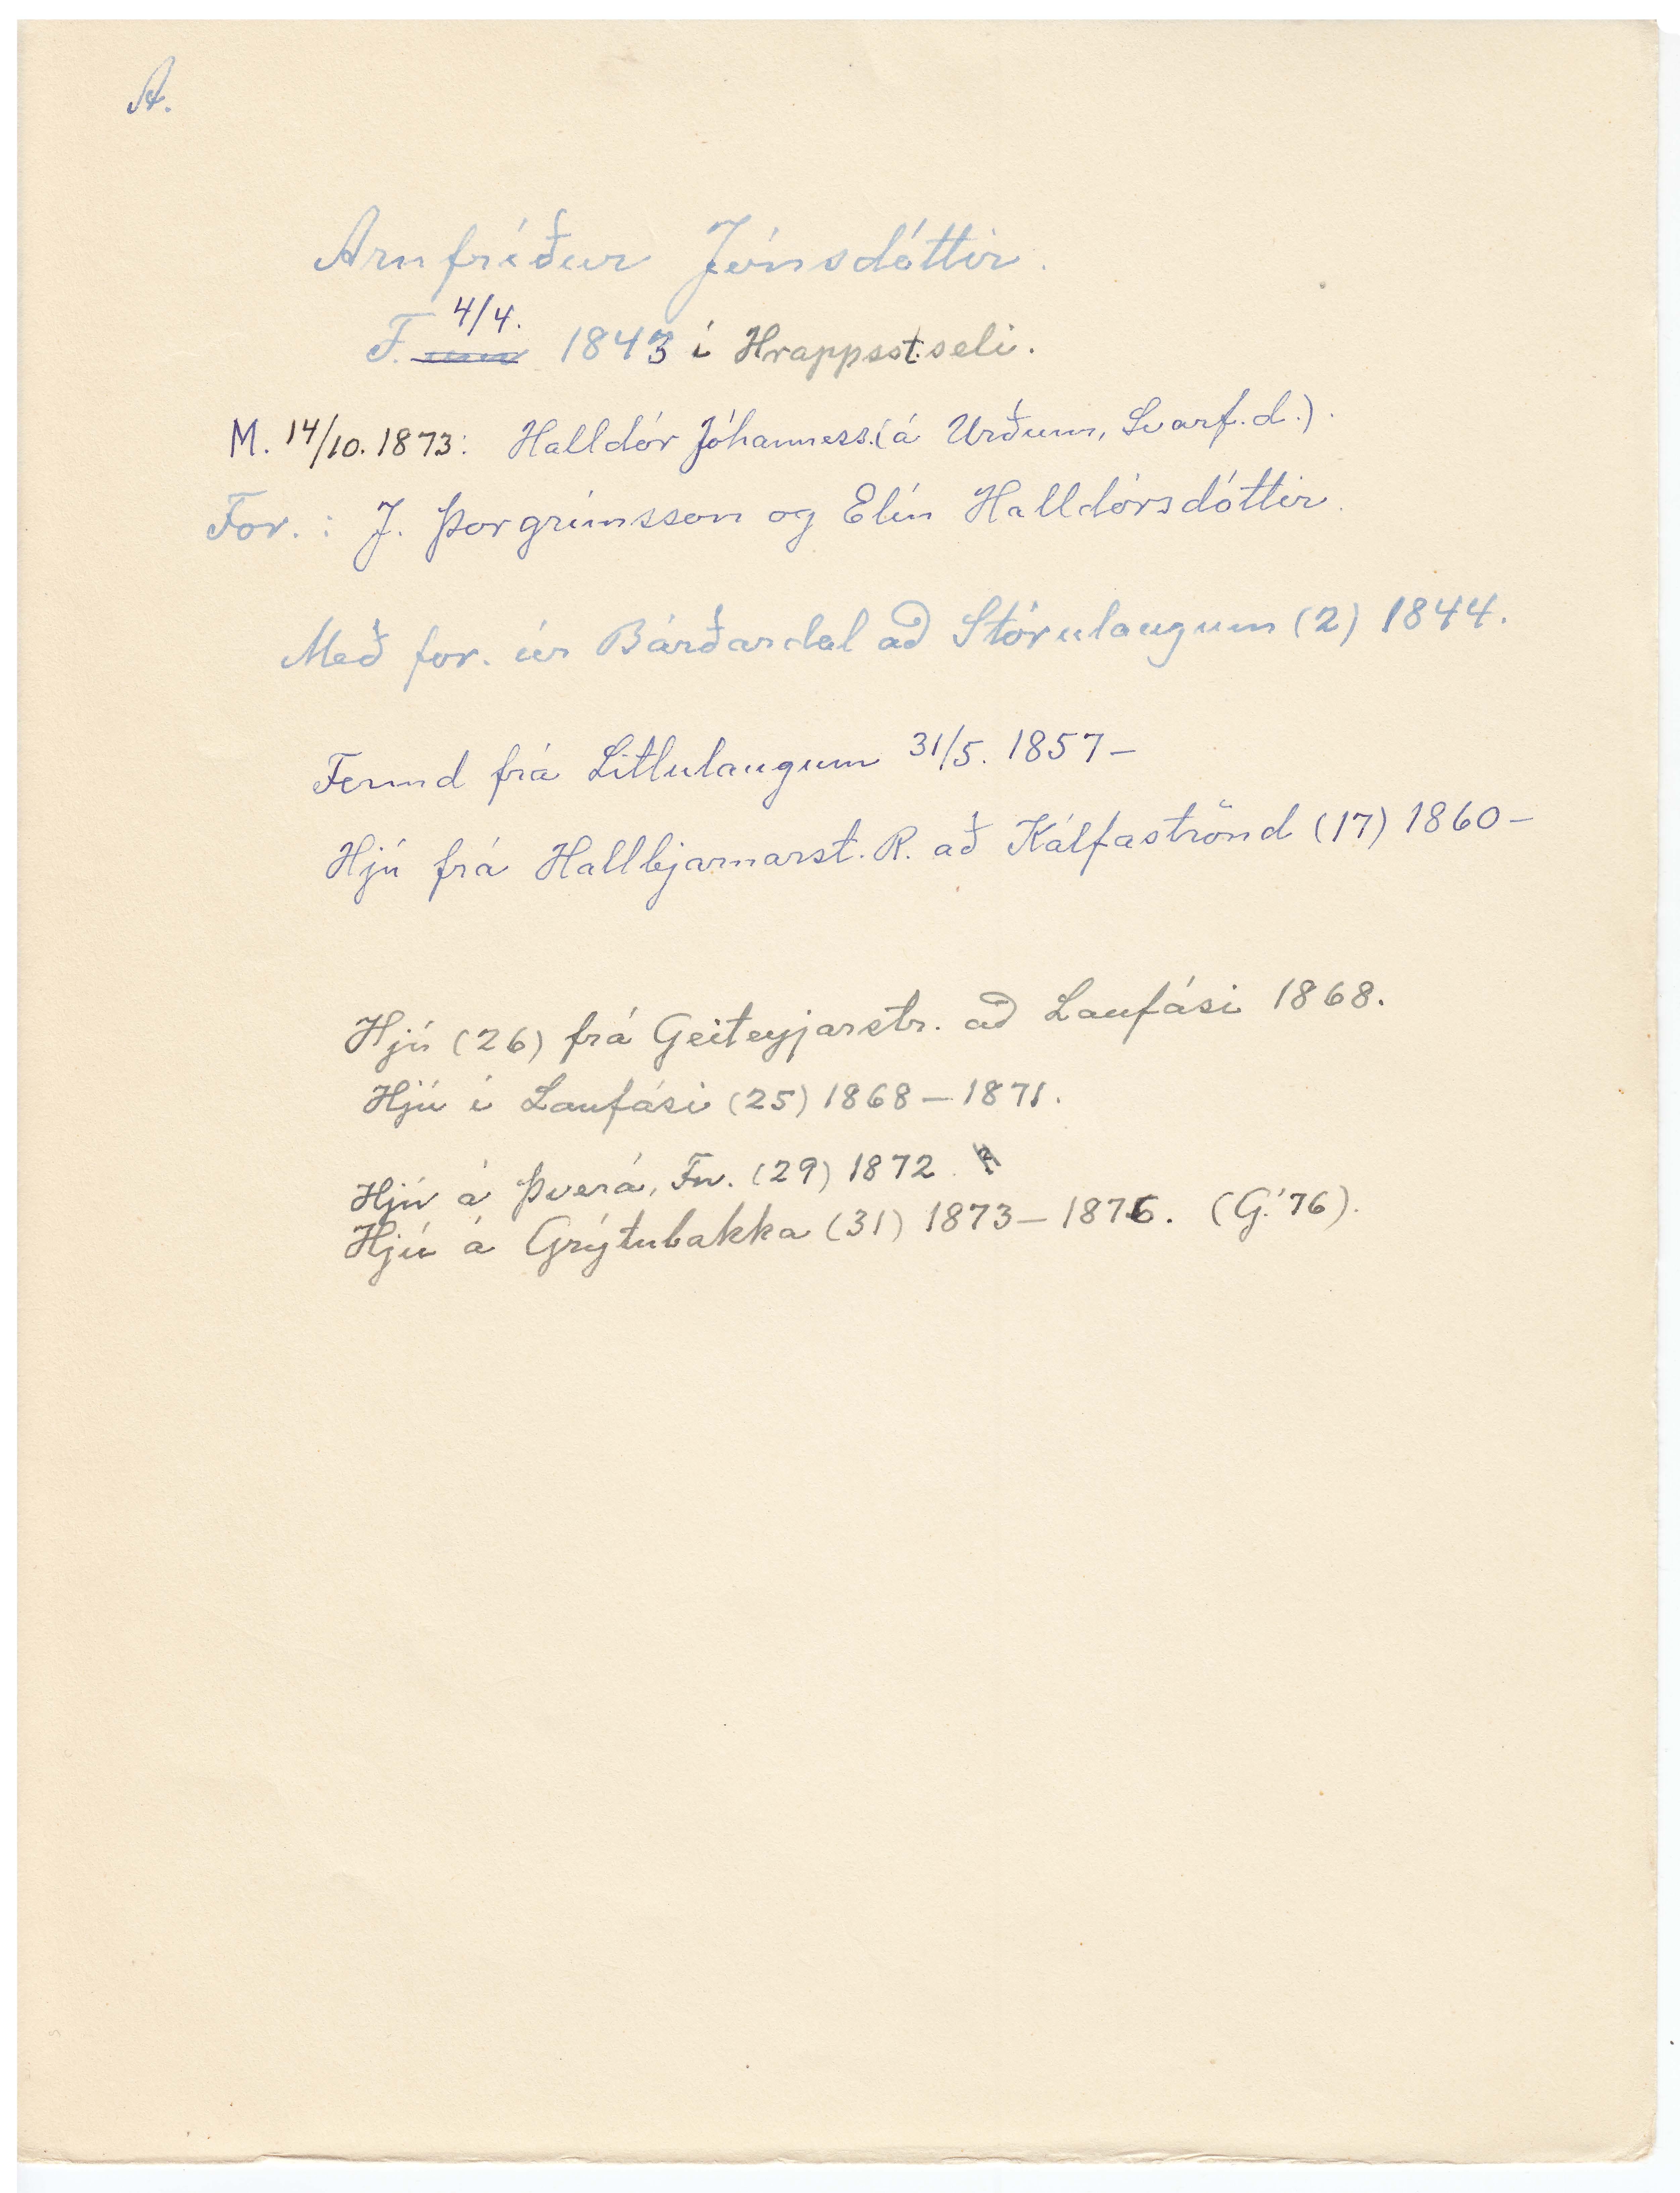 A.
Arnfríður Jónsdóttir.
F. 4/4. 1843 í Hrappsst.seli.
M. 14/10. 1873: Halldór Jóhanness. (á Urðum, Svarf.d.).
For.: J. Þorgrímsson og Elín Halldórsdóttir.
Með for. úr Bárðardal að Stórulaugum (2) 1844.
Fermd frá Litlulaugum 31/5. 1857–
Hjú frá Hallbjarnarst. R. að Kálfaströnd (17) 1860–
Hjú (26) frá Geiteyjarstr. að Laufási 1868.
Hjú í Laufási (25) 1868–1871.
Hjú á Þverá, Fn. (29) 1872
Hjú á Grýtubakka (31) 1873–1876. (G.'76).